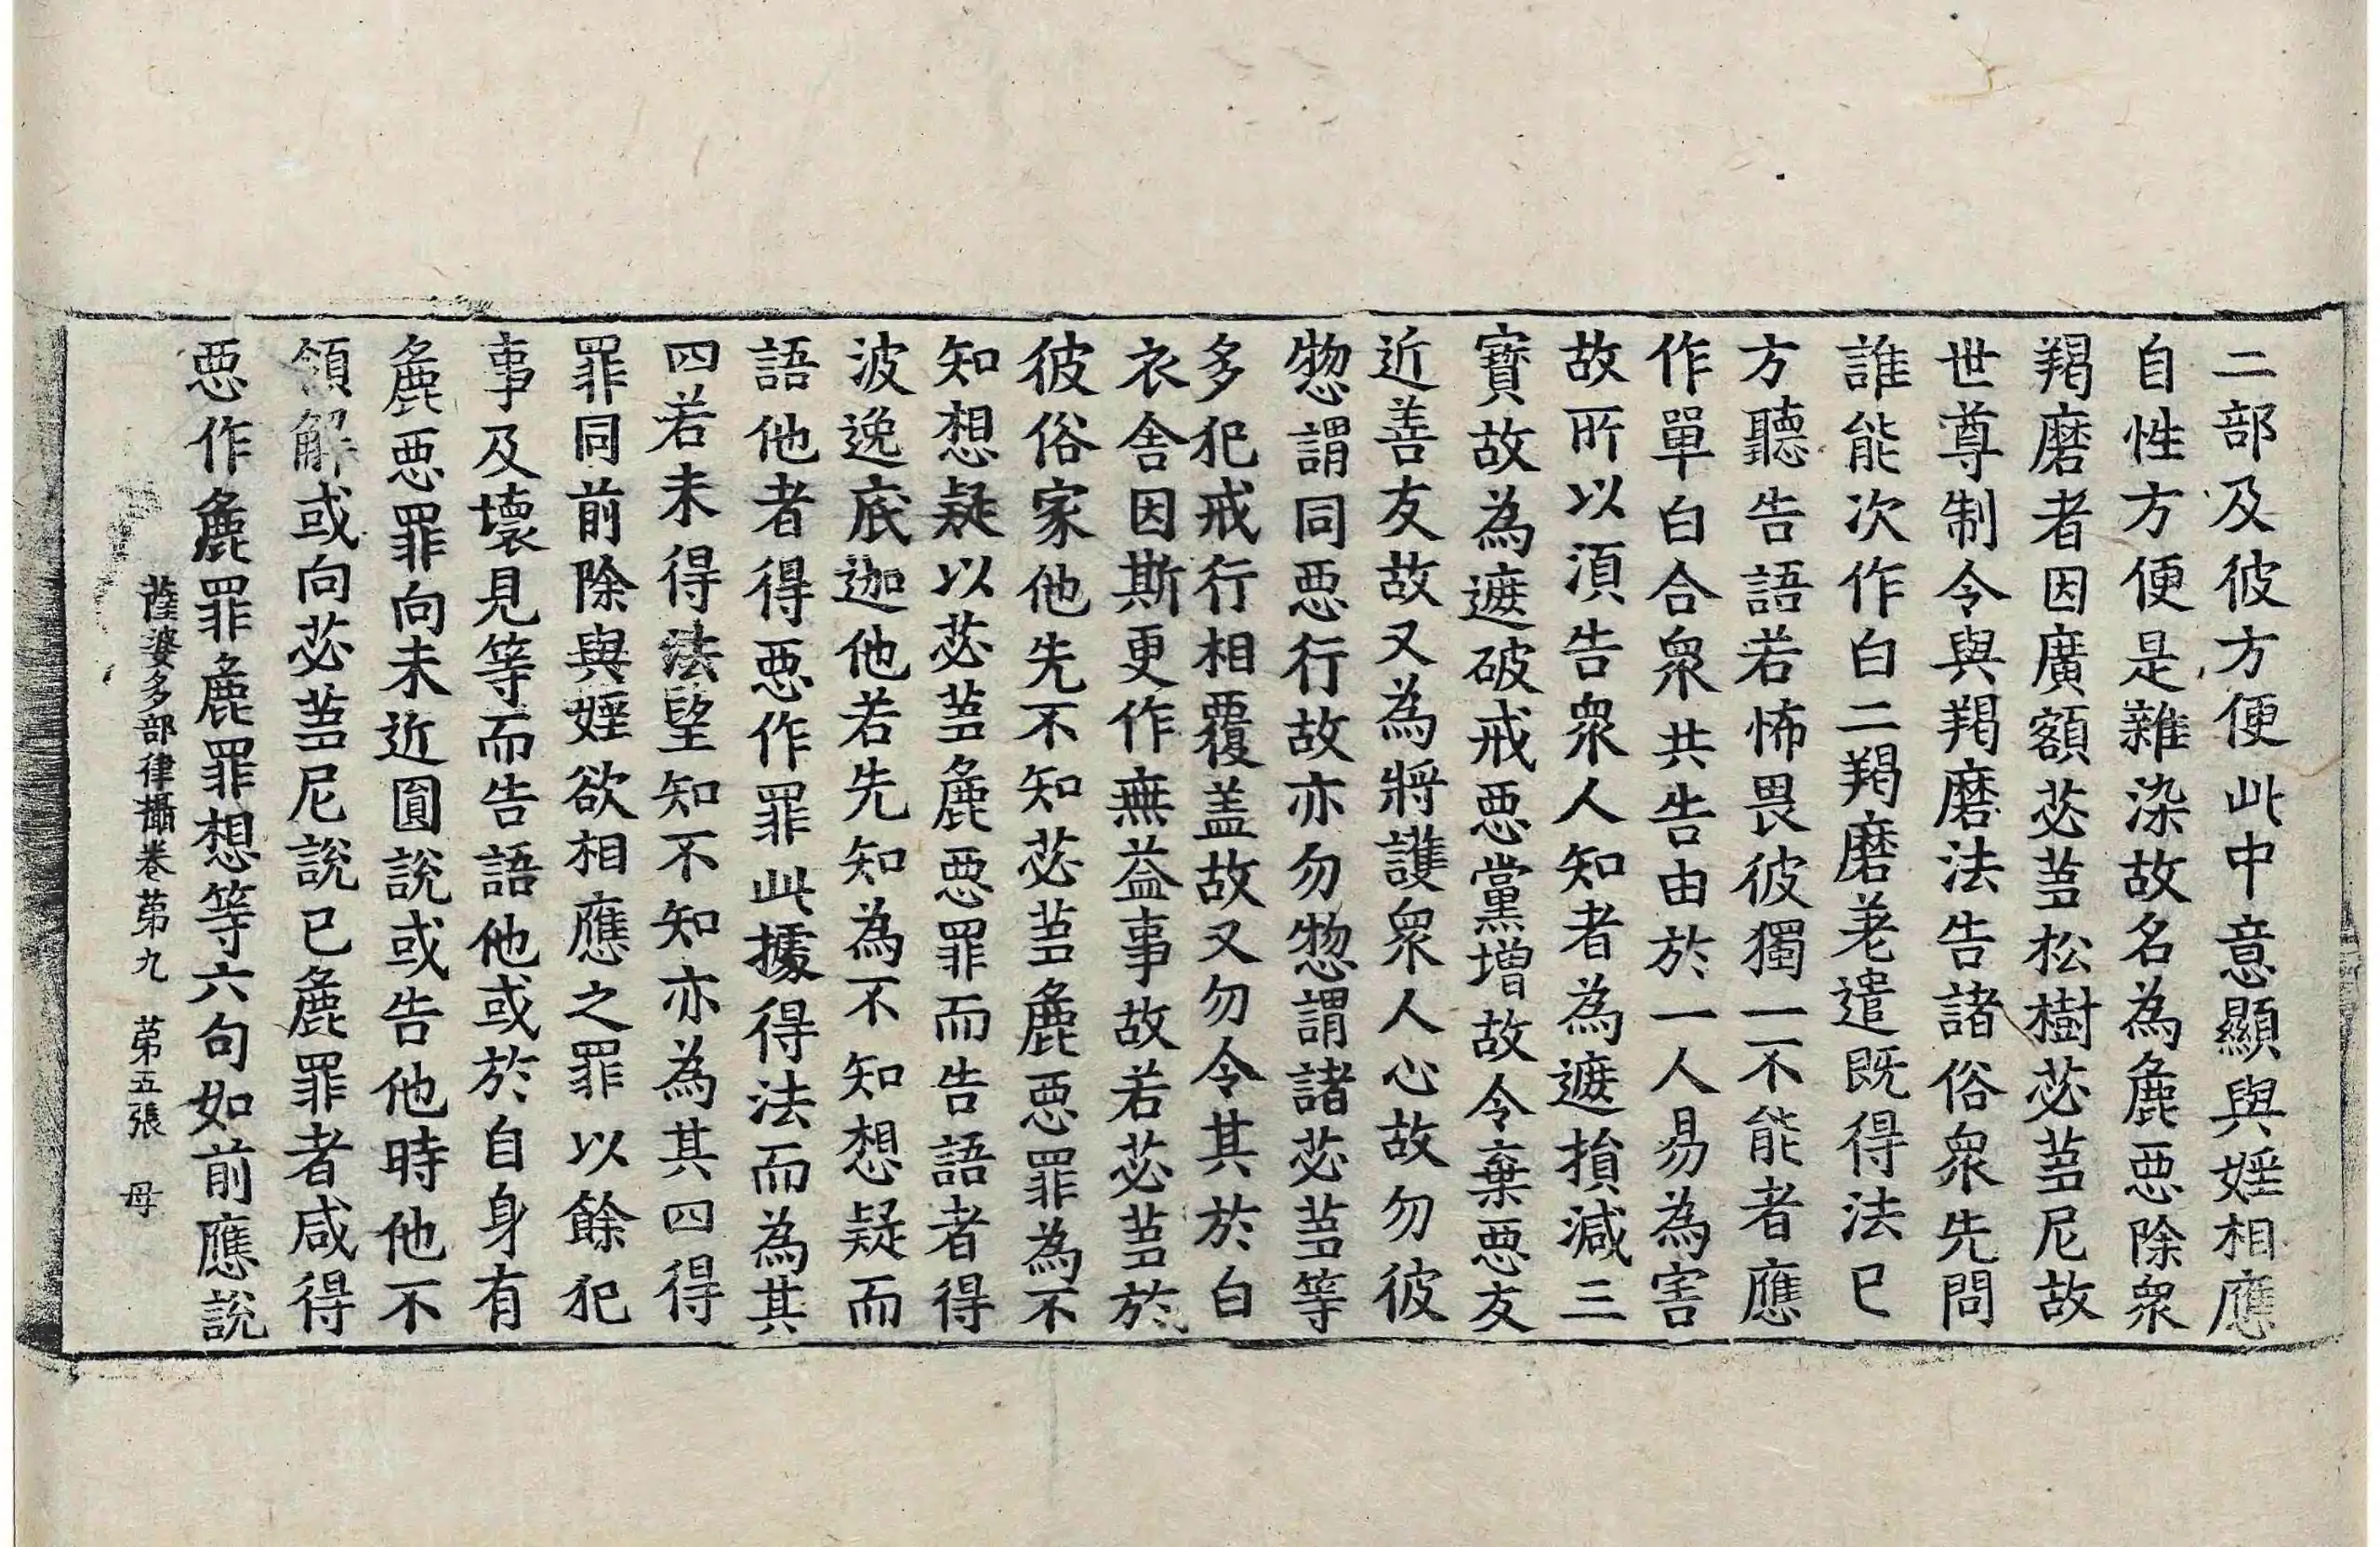 二部及彼方便此中意顯與婬相應
自性方便是雜染故名為麁惡除衆
羯磨者因廣額苾芻松樹苾芻尼故
世尊制令與羯磨法告諸俗衆先問
誰能次作白二羯磨差遣既得法已
方聽告語若怖畏彼獨一不能者應
作單白合衆共告由於一人易為害
故所以湏告衆人知者為遮損減三
寶故為遮破戒惡黨增故令棄惡友
近善友故又為將護衆人心故勿彼
惣謂同惡行故亦勿惣謂諸苾芻等
多犯戒行相覆盖故又勿令其於白
衣舍因斯更作無益事故若苾芻於
彼俗家他先不知苾芻麁惡罪為不
知想疑以苾芻麁惡罪而告語者得
波逸底迦他若先知為不知想疑而
語他者得惡作罪此據得法而為其
四若未得法望知不知亦為其四得
罪同前除與婬欲相應之罪以餘犯
事及壞見等而告語他或於自身有
麁惡罪向未近圓說或告他時他不
領解或向苾芻尼說已麁罪者咸得
惡作麁罪麁罪想等六句如前應說
薩婆多部律攝卷苐九　苐五張　母